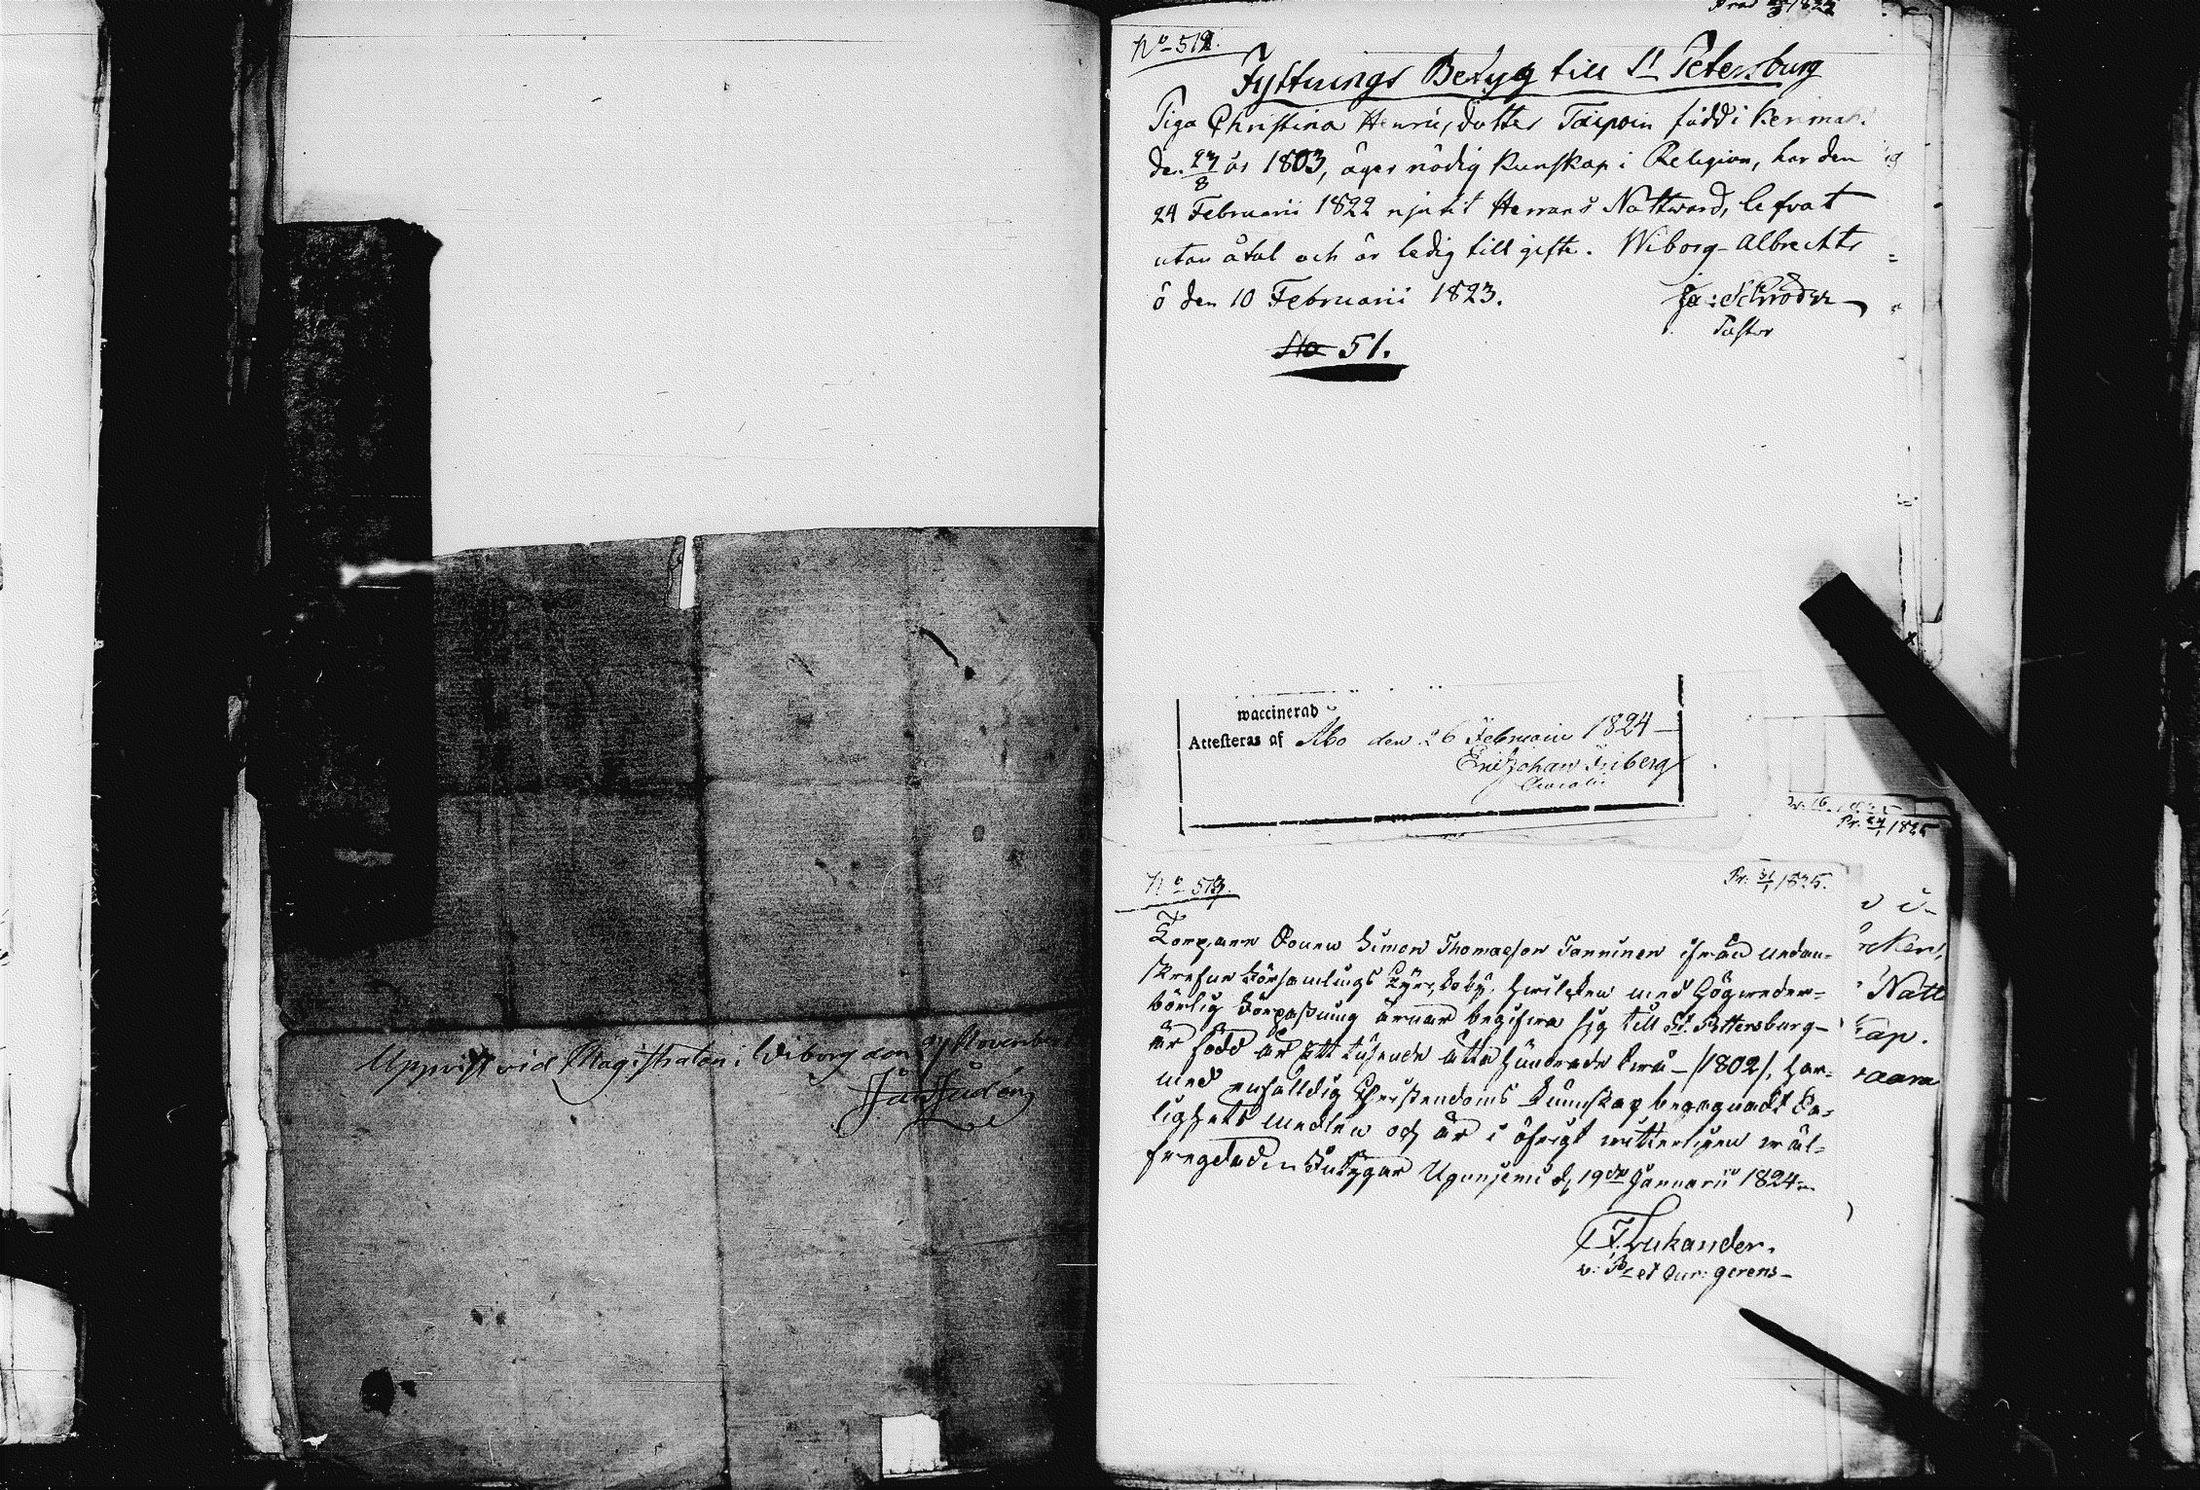 Uppvist vid Magistraten i Wiborg den 27 November
Prod 1823
No 512.
Fyttnings Betyg till St Petersburg
Piga Christina Henricsdotter Taipoin född i Kerimak.
den 27/8 år 1803, äger nödig kunskap i Religion, har den
24 Februarii 1822 njutit Herrans Nattward, lefvat
utan åtal och är ledig till gifte. Wiborg-Albrechts
ö den 10 Februarii 1823.
Ja: Schröder
Pastor
51.
waccinerad
Attesteras af Åbo den 26 Februarii 1824
Eric Johan Friberg
Pr. 24/1 1825
No 513.
Pr: 31/1 1825.
Torpare Sonen Simon Thomasson Tanninen ifrån undan-
skrefne Församlings by, hwilken med Högweder-
börlig Förpassning ärnar begifwa sig till St. Petersburg
är född år Ett tusende åtta hundrade två - /1802/, har
med enfalldig Christendoms kunnskap begagnadt Sa-
lighets medlen och är i öfrigt witterligen wäl-
fregdad Intygar Uguniemi d. 19de Januarii 1824
Lukander.
v: P et Cur: gerens
rcken,
Natt
kap.